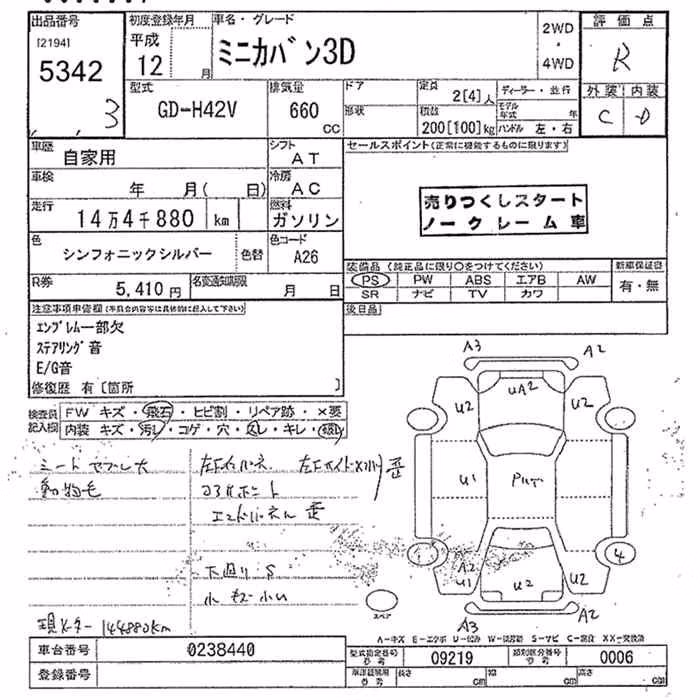 出品番号
[2194]
5342
3
初度登録年月
平成
12 月
車名・グレード
ミニカバン3D
2WD
・
4WD
評価点
R
外装 内装
C D
型式
GD-H42V
排気量
660
CC
ドア
形状
定員
2[4]人
積数
200[100]kg
ディーラー・並行
モデル年式 年
ハンドル 左・右
車歴
自家用
シフト
AT
車検
年 月( 日)
冷房
AC
走行
14万4千880 km
燃料
ガソリン
色
シンフォニックシルバー
色替
色コード
A26
R券
5,410 円
名変通知期限
月 日
セールスポイント(正常に機能するものに限ります)
売りつくしスタート
ノークレーム車
装備品 (純正品に限り○をつけてください)
PS PW ABS エアB AW
SR ナビ TV カワ
新車保証書
有・無
後日品
注意事項申告欄(不具合内容等は具体的に記入して下さい)
エンブレム一部欠
ステアリング音
E/G音
修復歴 有 [箇所 ]
検査員
記入欄
FW キズ・飛石・ヒビ割・リペア跡・×要
内装 キズ・汚レ・コゲ・穴・スレ・キレ・破レ
シートヤブレ大
動物毛
コアサポート
エンドパネル 歪
下廻り S
現メーター 144880km
A3
A2
U2
UA2
U2
U1
1
4
A2
U1
U2
U2
スペア
A3
A2
A-キズ E-エクボ U-凹み W-補修跡 S-サビ C-腐食 XX-交換済
車台番号
0238440
登録番号
型式指定番号
参考
09219
類別区分番号
参考
0006
車庫証明用
参考
長さ cm
幅 cm
高さ cm